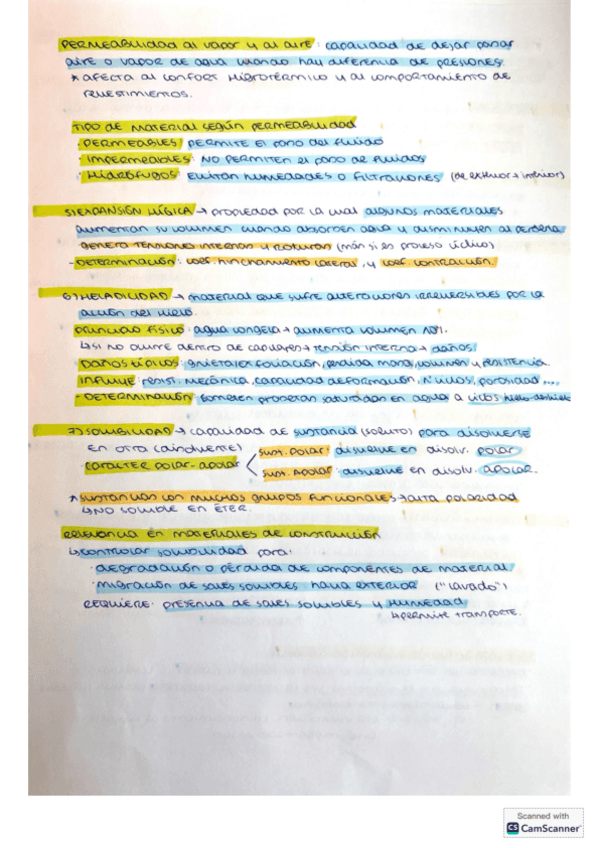 PERMEABILIDAD AL VAPOR Y AL AIRE: CAPACIDAD DE DEJAR PASAR
AIRE O VAPOR DE AGUA CUANDO HAY DIFERENCIA DE PRESIONES.
* AFECTA AL CONFORT HIGROTÉRMICO Y AL COMPORTAMIENTO DE
REVESTIMIENTOS.
TIPO DE MATERIAL SEGÚN PERMEABILIDAD
· PERMEABLES: PERMITE EL PASO DEL FLUIDO
· IMPERMEABLES: NO PERMITEN EL PASO DE FLUIDOS
· HIDRÓFUGOS: EVITAN HUMEDADES O FILTRACIONES (DE EXTERIOR → INTERIOR)
5) EXPANSIÓN HÍGRICA → PROPIEDAD POR LA CUAL ALGUNOS MATERIALES
AUMENTAN SU VOLUMEN CUANDO ABSORBEN AGUA Y DISMINUYEN AL PERDERLA
GENERA TENSIONES INTERNAS Y ROTURAS (MÁS SI ES PROCESO CÍCLICO)
- DETERMINACIÓN: COEF. HINCHAMIENTO LATERAL, Y COEF. CONTRACCIÓN.
6) HELADICIDAD → MATERIAL QUE SUFRE ALTERACIONES IRREVERSIBLES POR LA
ACCIÓN DEL HIELO.
PRINCIPIO FÍSICO: AGUA CONGELA → AUMENTA VOLUMEN
↳ SI NO OCURRE DENTRO DE CAPILARES → TENSIÓN INTERNA → DAÑOS!
DAÑOS TÍPICOS: GRIETAS, EXFOLIACIÓN, PÉRDIDA MASA, VOLUMEN Y RESISTENCIA.
INFLUYE: RESIST. MECÁNICA, CAPACIDAD DEFORMACIÓN, Nº CICLOS, POROSIDAD...
- DETERMINACIÓN: SOMETEN PROBETAS SATURADAS EN AGUA A CICLOS HIELO-DESHIELO
7) SOLUBILIDAD → CAPACIDAD DE SUSTANCIA (SOLUTO) PARA DISOLVERSE
EN OTRA (DISOLVENTE)
CARÁCTER POLAR-APOLAR
SUST. POLAR: DISUELVE EN DISOLV. POLAR
SUST. APOLAR: DISUELVE EN DISOLV. APOLAR.
* SUSTANCIAS CON MUCHOS GRUPOS FUNCIONALES → ALTA POLARIDAD
↳ NO SOLUBLE EN ÉTER.
RELEVANCIA EN MATERIALES DE CONSTRUCCIÓN
↳ CONTROLAR SOLUBILIDAD PARA:
· DEGRADACIÓN O PÉRDIDA DE COMPONENTES DE MATERIAL
· MIGRACIÓN DE SALES SOLUBLES HACIA EXTERIOR ("LAVADO")
REQUIERE: PRESENCIA DE SALES SOLUBLES Y HUMEDAD
↳ PERMITE TRANSPORTE.
Scanned with
CS CamScanner